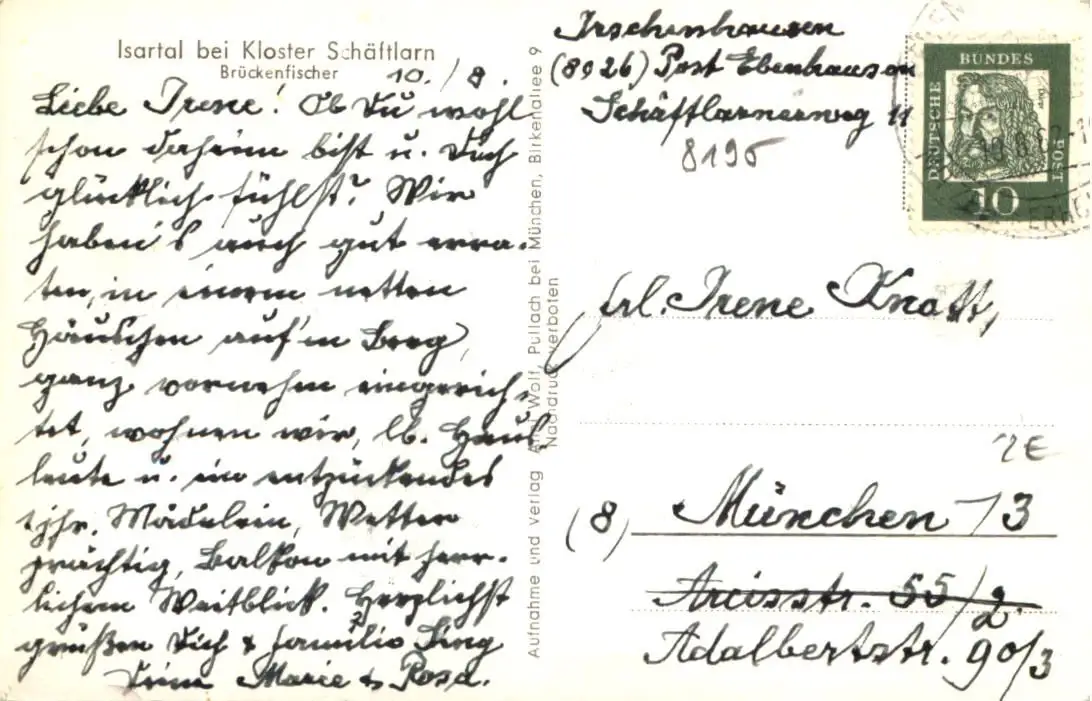 Isartal bei Kloster Schäftlarn
Brückenfischer
10./8.
Liebe Irene! Ob Du wohl
schon daheim bist u. Dich
glücklich fühlst? Wir
haben's auch gut erra-
ten, in einem netten
Häuschen auf'm Berg,
ganz vornehm eingerich-
tet, wohnen wir, lb. Haus-
leute u. ein entzückendes
1jhr. Mädelein, Wetter
prächtig, Balkon mit herr-
lichem Weitblick. Herzlichst
grüßen Dich & Familie
Deine Marie & Rosa.
Aufnahme und Verlag Wolf, Pullach bei München, Birkenallee 9
Nachdruck verboten
Irschenhausen
(8026) Post Ebenhausen
Schäftlarnerweg 11
8195
DEUTSCHE
BUNDES
POST
10
Frl. Irene Knott,
(8) München 13
Arcisstr. 55/2.
Adalbertstr. 90/3